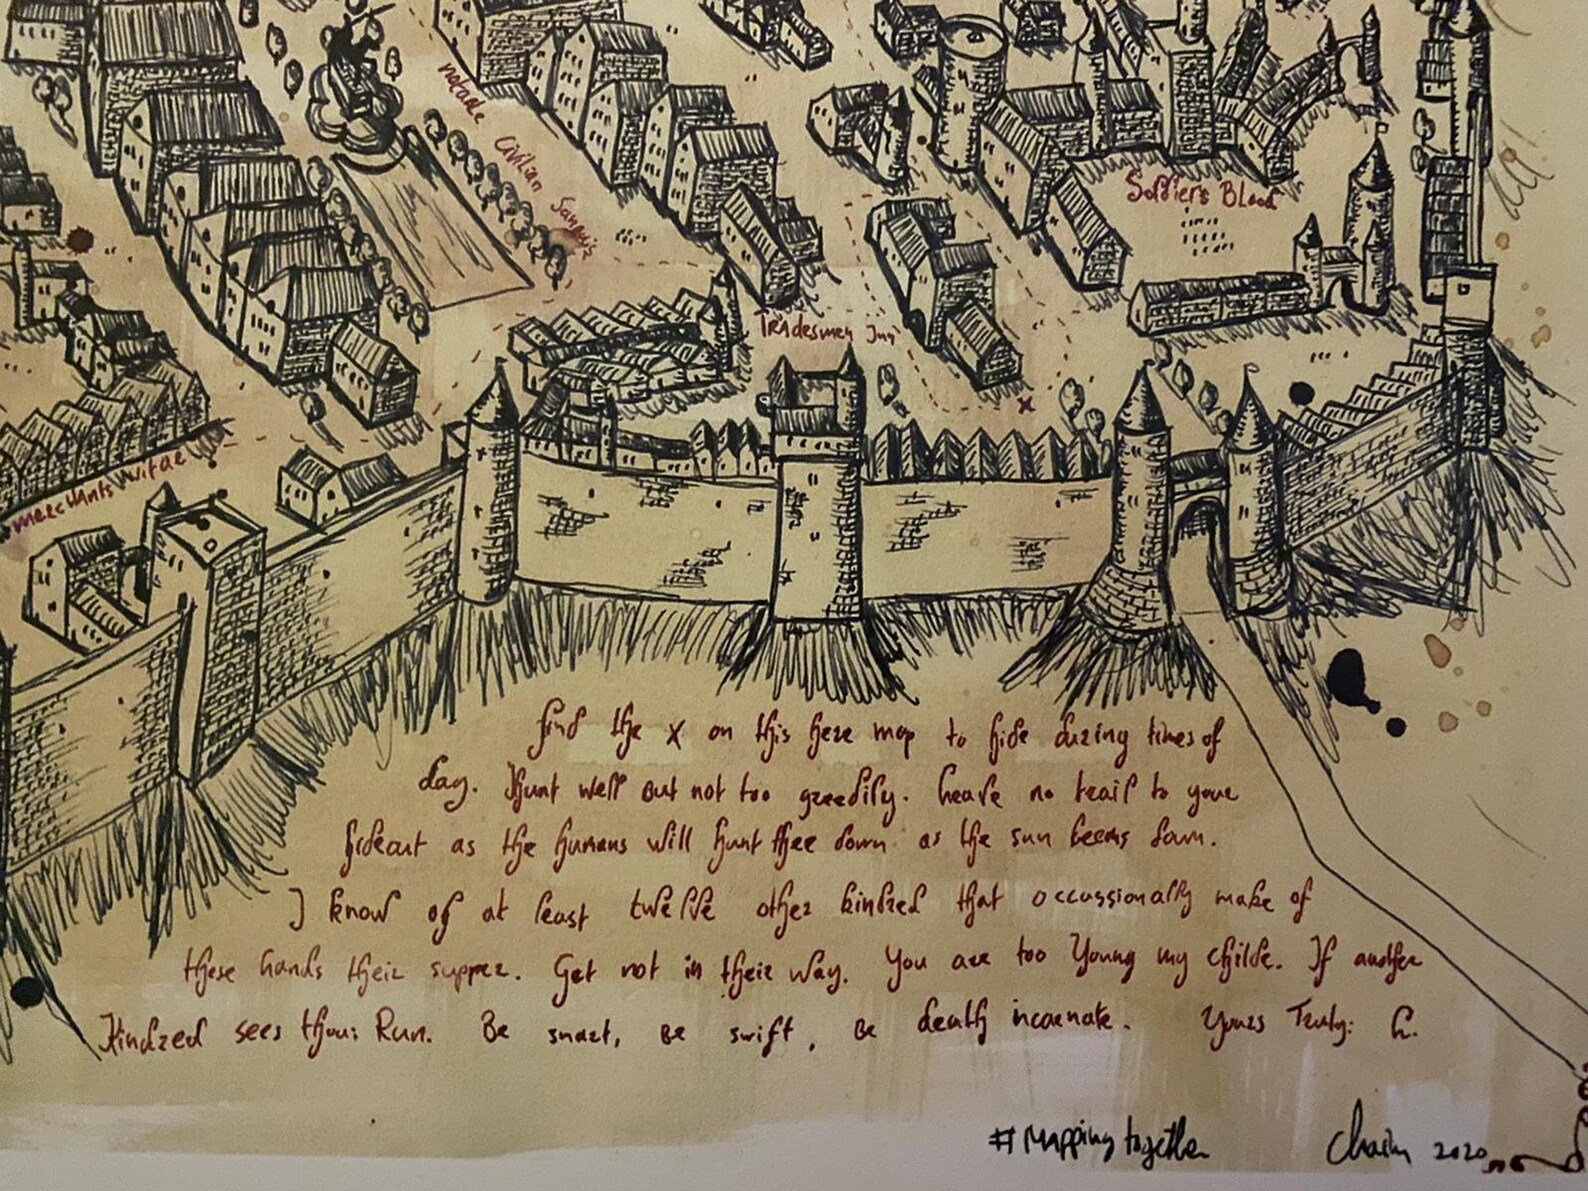 Civilian
Soldier's Blood
Tradesmen Inn
Merchants Vitae
find the X on this here map to hide during times of
day. Hunt well but not too greedily. Leave no trail to your
hideout as the humans will hunt thee down as the sun beems down.
I know of at least twelve other kindred that occassionally make of
these lands their supper. Get not in their way. You are too Young my childe. If another
Kindred sees thou; Run. Be smart, Be swift, Be death incarnate. Yours Truly: L.
#Mappingtogether 2020